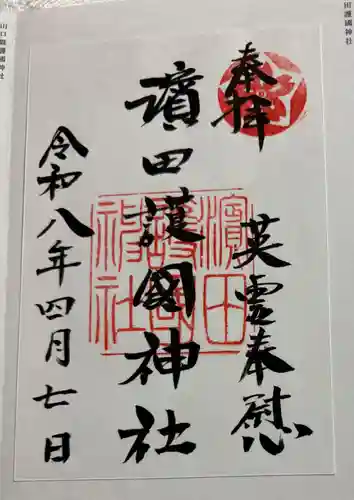 奉拝
英霊奉慰
濵田護國神社
令和八年四月七日
濵田
護國
神社
田護國神社
山口縣護國神社